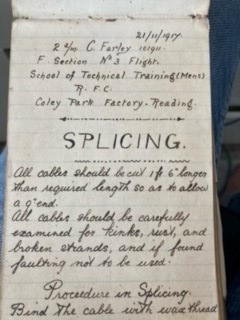 21/11/1917
2 A/m. C. Farley 101911.
F. Section No 3 Flight.
School of Technical Training (Mens)
R. F. C.
Coley Park Factory. Reading.
SPLICING.
All cables should be cut 1 ft 6" longer
than required length so as to allow
a 9" end.
All cables should be carefully
examined for kinks, rust, and
broken strands, and if found
faulting not to be used.
Procedure in Splicing.
Bind the cable with wax thread